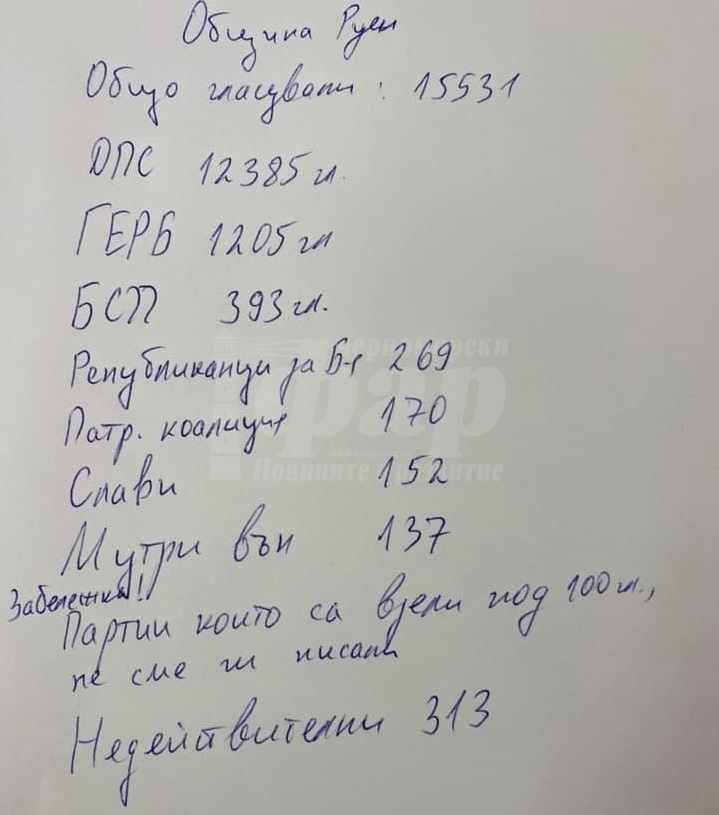 Община Руен
Общо гласували: 15531
ДПС 12385 гл.
ГЕРБ 1205 гл
БСП 393 гл.
Републиканци за Б-я 269
Патр. коалиция 170
Слави 152
Мутри вън 137
Забележка!!
Партии които са взели под 100 гл.,
не сме ги писали
Недействителни 313
Черноморски
фар
Новините с развитие